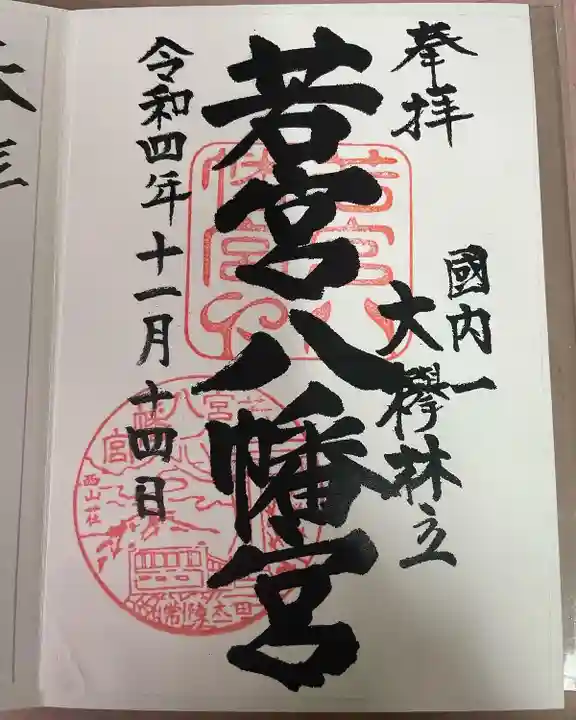 奉拝
國内一
大欅林立
若宮八幡宮
令和四年十一月十四日
西山荘
常陸太田